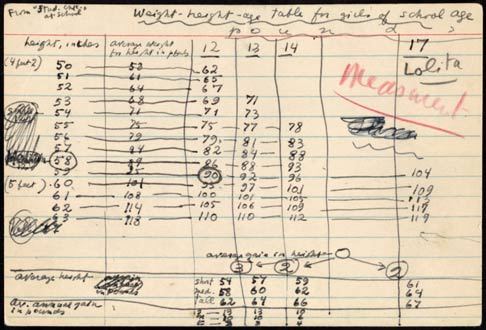 From "Stud.
at School
Weight-height-age table for girls of school age
p o u n d s
height, inches average weight for height in pounds 12 13 14 17
Lolita
(4 feet 2) 50 58 62
51 61 65
52 64 67
53 68 69 71
54 71 71 73
55 75 75 77 78
56 79 79 81 83
57 84 82 84 88
58 86 88 93
59 95 90 92 96 104
(5 feet) 60 101 95 97 101 109
61 108 100 101 105 113
62 114 105 106 109 117
63 118 110 110 112 119
average gain in height
3 2 2
average height short 54 57 59 61
med. 58 60 62 64
tall 62 64 66 67
av. annual gain
in pounds